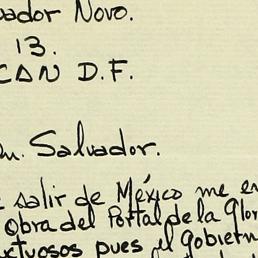 uador Novo.
13.
CAN D.F.
n. Salvador.
salir de México me en
Obra del Portal de la Glor
ctuosos pues el gobiern